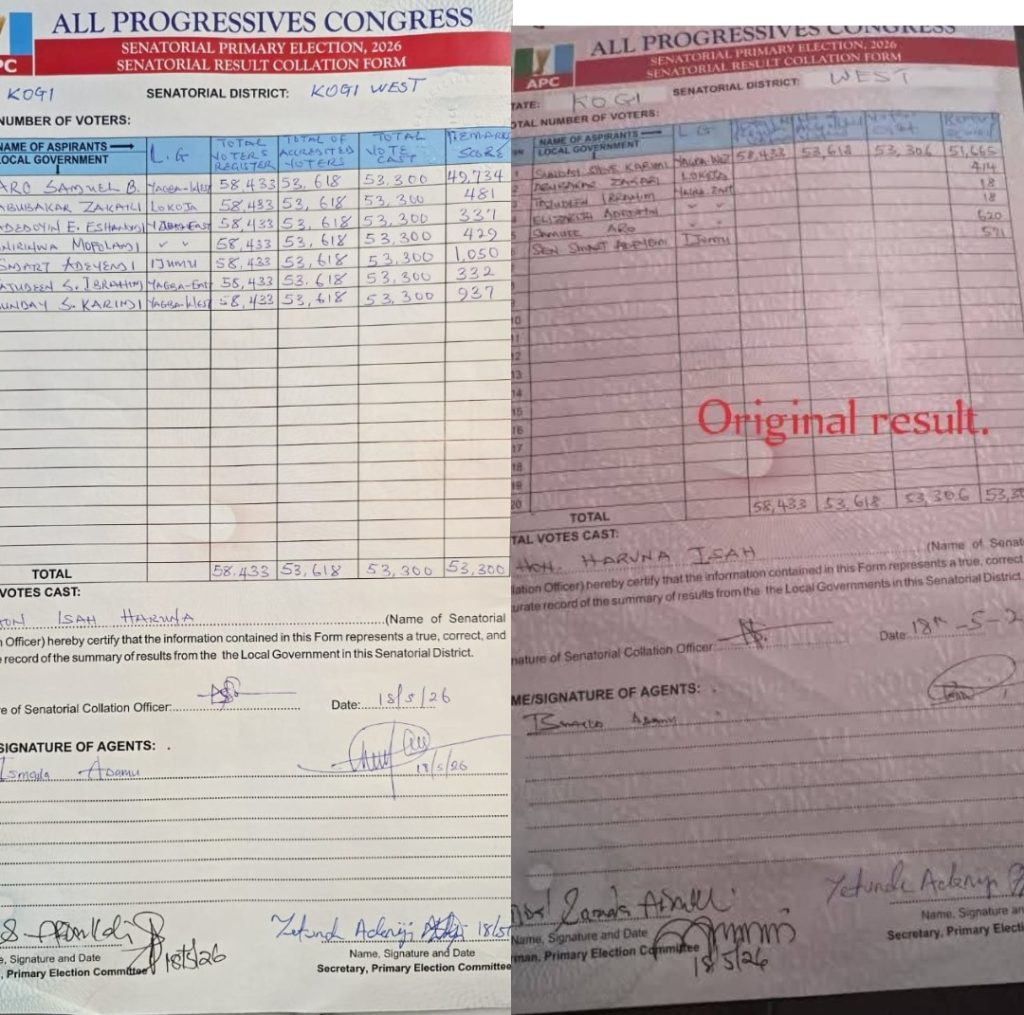 ALL PROGRESSIVES CONGRESS
SENATORIAL PRIMARY ELECTION, 2026
SENATORIAL RESULT COLLATION FORM
PC
KOGI SENATORIAL DISTRICT: KOGI WEST
NUMBER OF VOTERS:
NAME OF ASPIRANTS
LOCAL GOVERNMENT L.G TOTAL VOTERS REGISTER TOTAL OF ACCREDITED VOTERS TOTAL VOTE CAST REMARK SCORE
ARO SAMUEL B. YAGBA-WEST 58,433 53,618 53,300 49,734
ABUBAKAR ZAKARI LOKOJA 58,433 53,618 53,300 481
ADEDOYIN E. 58,433 53,618 53,300 337
58,433 53,618 53,300 429
SMART ADEYEMI IJUMU 58,433 53,618 53,300 1,050
TAJUDEEN S. IBRAHIM YAGBA-EAST 58,433 53,618 53,300 332
SUNDAY S. KARIMI YAGBA-WEST 58,433 53,618 53,300 937
TOTAL 58,433 53,618 53,300 53,300
VOTES CAST:
HON ISAH HARUNA (Name of Senatorial
n Officer) hereby certify that the information contained in this Form represents a true, correct, and
e record of the summary of results from the the Local Government in this Senatorial District.
e of Senatorial Collation Officer: Date: 18/5/26
SIGNATURE OF AGENTS:
Ismaila Adamu 18/5/26
18/5/26
Yetunde Adeniji 18/5
e, Signature and Date
, Primary Election Committee
Name, Signature and Date
Secretary, Primary Election Committee
ALL PROGRESSIVES CONGRESS
SENATORIAL PRIMARY ELECTION, 2026
SENATORIAL RESULT COLLATION FORM
APC
TATE: KOGI SENATORIAL DISTRICT: WEST
OTAL NUMBER OF VOTERS:
NAME OF ASPIRANTS
LOCAL GOVERNMENT L.G
1 SUNDAY STEVE KARIMI YAGBA WEST 58,433 53,618 53,306 51,665
2 ABUBAKAR ZAKARI LOKOJA 414
TAJUDEEN IBRAHIM YAGBA EAST 18
ELIZABETH 18
SAMUEL ARO 620
SEN SMART ADEYEMI IJUMU 571
10
12
13
14
15
16
17
18
19
20
Original result.
TOTAL 58,433 53,618 53,306 53,30
TAL VOTES CAST:
HON. HARUNA ISAH (Name of Senat
llation Officer) hereby certify that the information contained in this Form represents a true, correct
urate record of the summary of results from the the Local Governments in this Senatorial District
nature of Senatorial Collation Officer: Date: 18th -5-2
ME/SIGNATURE OF AGENTS:
Ismaila Adamu
Yetunde Adeniji
Name, Signature and Date
man, Primary Election Committee
18/5/26
Name, Signature an
Secretary, Primary Electi